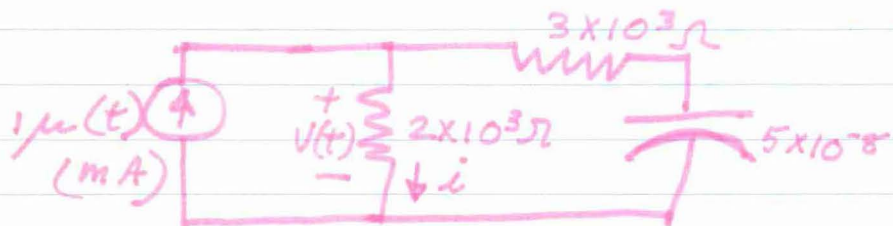 3×10³Ω
1μ(t)
(mA)
+
V(t)
−
2×10³Ω
i
5×10⁻⁸